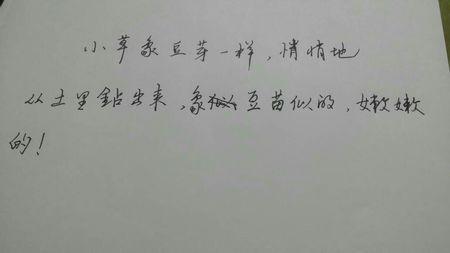 小草象豆芽一样，悄悄地
从土里鉆出来，象豆苗似的，嫩嫩
的！